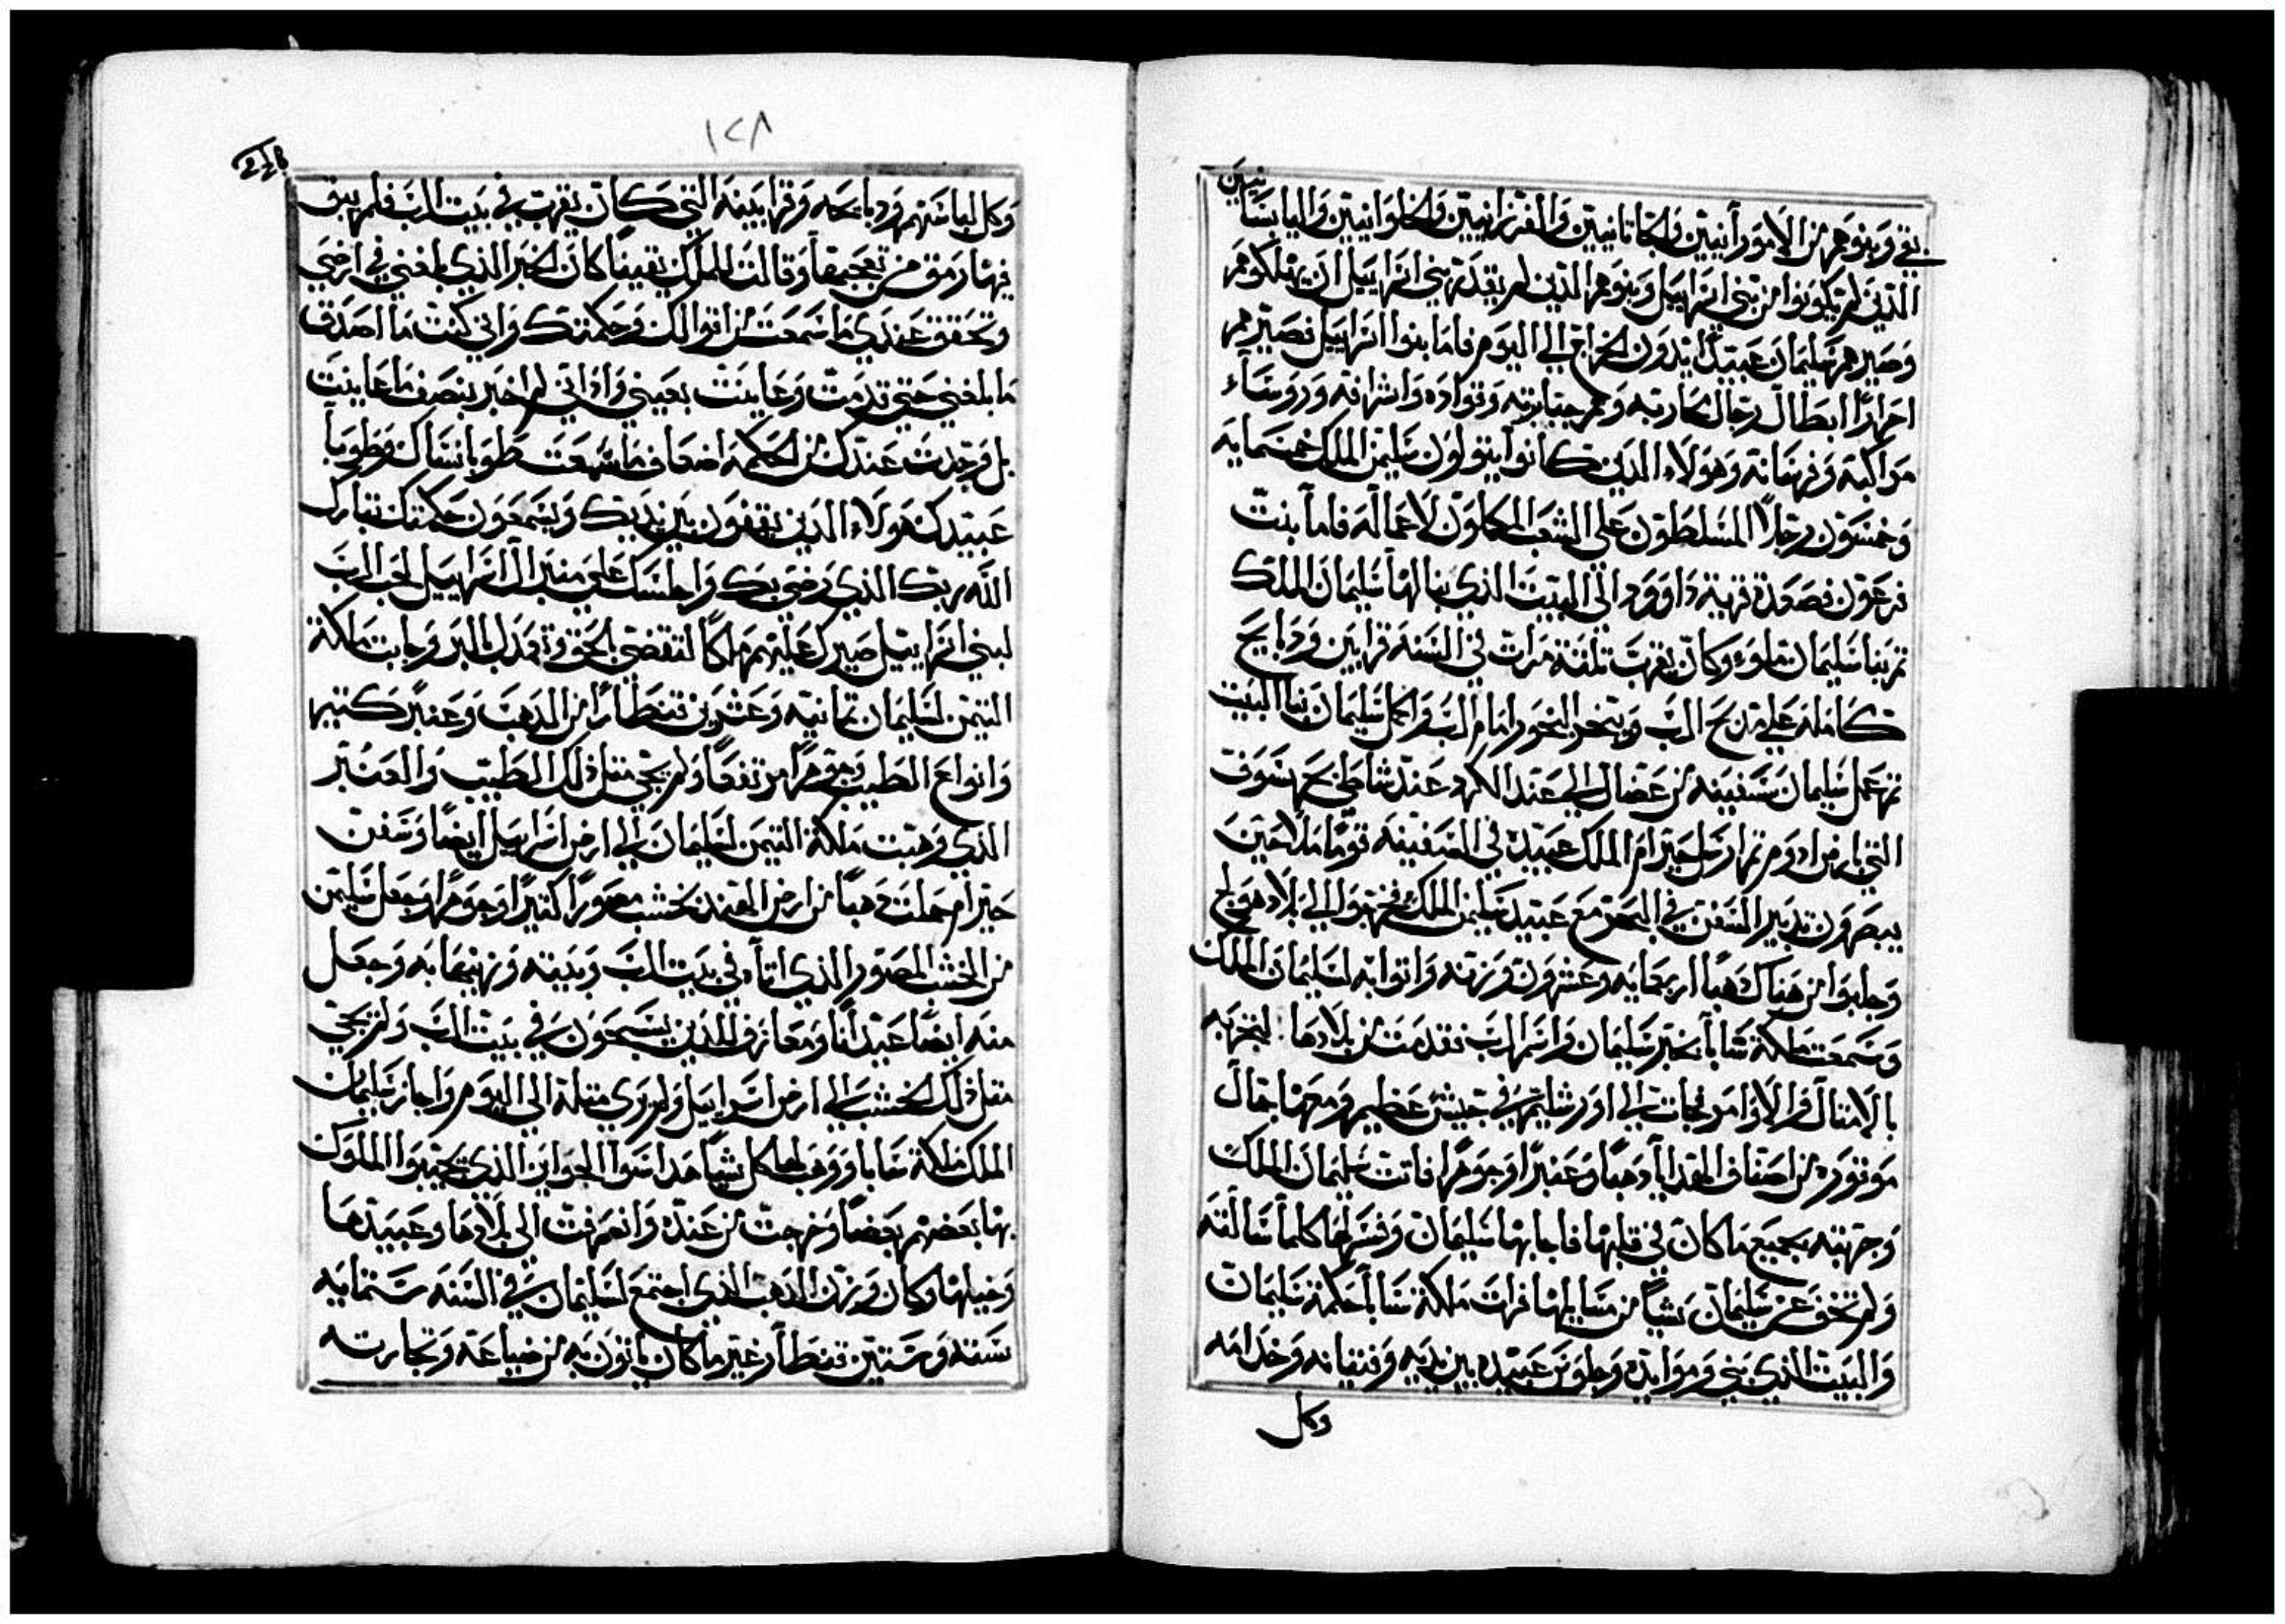 نيين
بقي وبنوهم من الاموارنيين والحاتانيين والفرزانيين والحلوانيين واليابسا
الذين لم يكونوا من بني اسراييل وبنوهم الذين لم يقدر بني اسراييل ان يهلكوهم
وصيرهم سليمان عبيدًا يدون الخراج الي اليوم فاما بنوا اسراييل فصيرهم
احرارًا ابطال رجال محاربه وهم جبابرته وقواده واشرافه وروساء
مراكبه وفرسانه وهولاء الذين كانوا يتولون سليمن الملك خمسمايه
وخمسون رجلاً المسلطون علي الشعب المكاون لاعماله فاما بنت
فرعون فصعدة قرية داوود الي البيت الذي بنا لها سليمان الملك
ثم بنا سليمان ملوء وكان يقرب ثلثة مرات في السنه قرابين ودبايح
كامله علي مدبح الرب ويبخر البخور امام الرب واكمل سليمان بنا البيت
ثم عمل سليمان سفينه من عضال الي عند الكرد عند شاطي بحر سوف
التي بارض ادوم ثم ارسل حيرام الملك عبيده في السفينه قومًا ملاحين
يبصرون تدبير السفن في البحر مع عبيد سليمن الملك فخرجوا الي بلاد هوبلج
وجلبوا من هناك دهبًا اربعمايه وعشرون وزنه واتوا به لسليمان الملك
وسمعت ملكة شابا بخبر سليمان واسم الرب فقدمت من بلادها لتجربه
بالامثال والاوامر فجات الي اورشليم في جيش عظيم ومعها جمال
موقوره من اصناف الهدايا دهبًا وعنبرًا وجوهرًا فاتت سليمان الملك
وجربته بجميع ما كان في قلبها فاجابها سليمان وفسر لها كلما سالته
ولم تخف عن سليمان شياً من مسايلها فرات ملكة سابا حكمة سليمان
والبيت الذي بني ومواىده وجلوس عبيده بين يديه وفتيانه وخدامه
وكل
١٢٨
وكل لباسهم ودبايحه وقرابينه التي كان يقرب في بيت الرب فلم يبق
فيها رمق من تعجبها وقالت للملك يقينًا كان الخبر الذي بلغني في ارضي
وتحقق عندي ما سمعت من اقوالك وحكمتك واني كنت ما اصدق
ما بلغني حتي قدمت وعاينت بعيني واذا اني لم اخبر بنصف ما عاينت
بل وجدت عندك من الحكمه اضعاف ما سمعت طوبا نساك وطوبا
عبيدك هولاء الذين يقفون بين يديك ويسمعون حكمتك تبارك
الله ربك الذي رضي بك واجلسك علي منبر ال اسراييل لحب الرب
لبني اسراييل صيرك عليهم ملكًا لتقضي بالحق وتعدل بالبر وجابت ملكة
التيمن لسليمان ثمانيه وعشرين قنطارًا من الدهب وعنبرًا كثيرا
وانواع الطيب وجوهرًا مرتفعًا ولم يجي مثل ذلك الطيب والعنبر
الذي وهبت ملكة التيمن لسليمان الي ارض اسراييل ايضًا وسفن
حيرام حملت دهبًا من ارض الهند وخشب مصورًا كثيرًا وجوهرًا وجعل سليمن
من الخشب المصور الذي اتاه في بيت الرب وبيته وزينها به وجعل
منه ايضًا عيدانًا ومعازف للذين يسبحون في بيت الرب ولم يجي
مثل ذلك الخشب الي ارض اسراييل ولم يري مثله الي اليوم واجاز سليمان
الملك ملكة سابا ووهب لها كل شيًا هدا سوا الجوايز الذي يجيزوا الملوك
بها بعضهم بعضًا وخرجت من عنده وانصرفت الي بلادها وعبيدها
وخيلها وكان وزن الدهب الذي اجتمع لسليمان في السنه ستمايه
ستة وستين قنطار غير ما كان ياتون به من ضياعه وتجارته